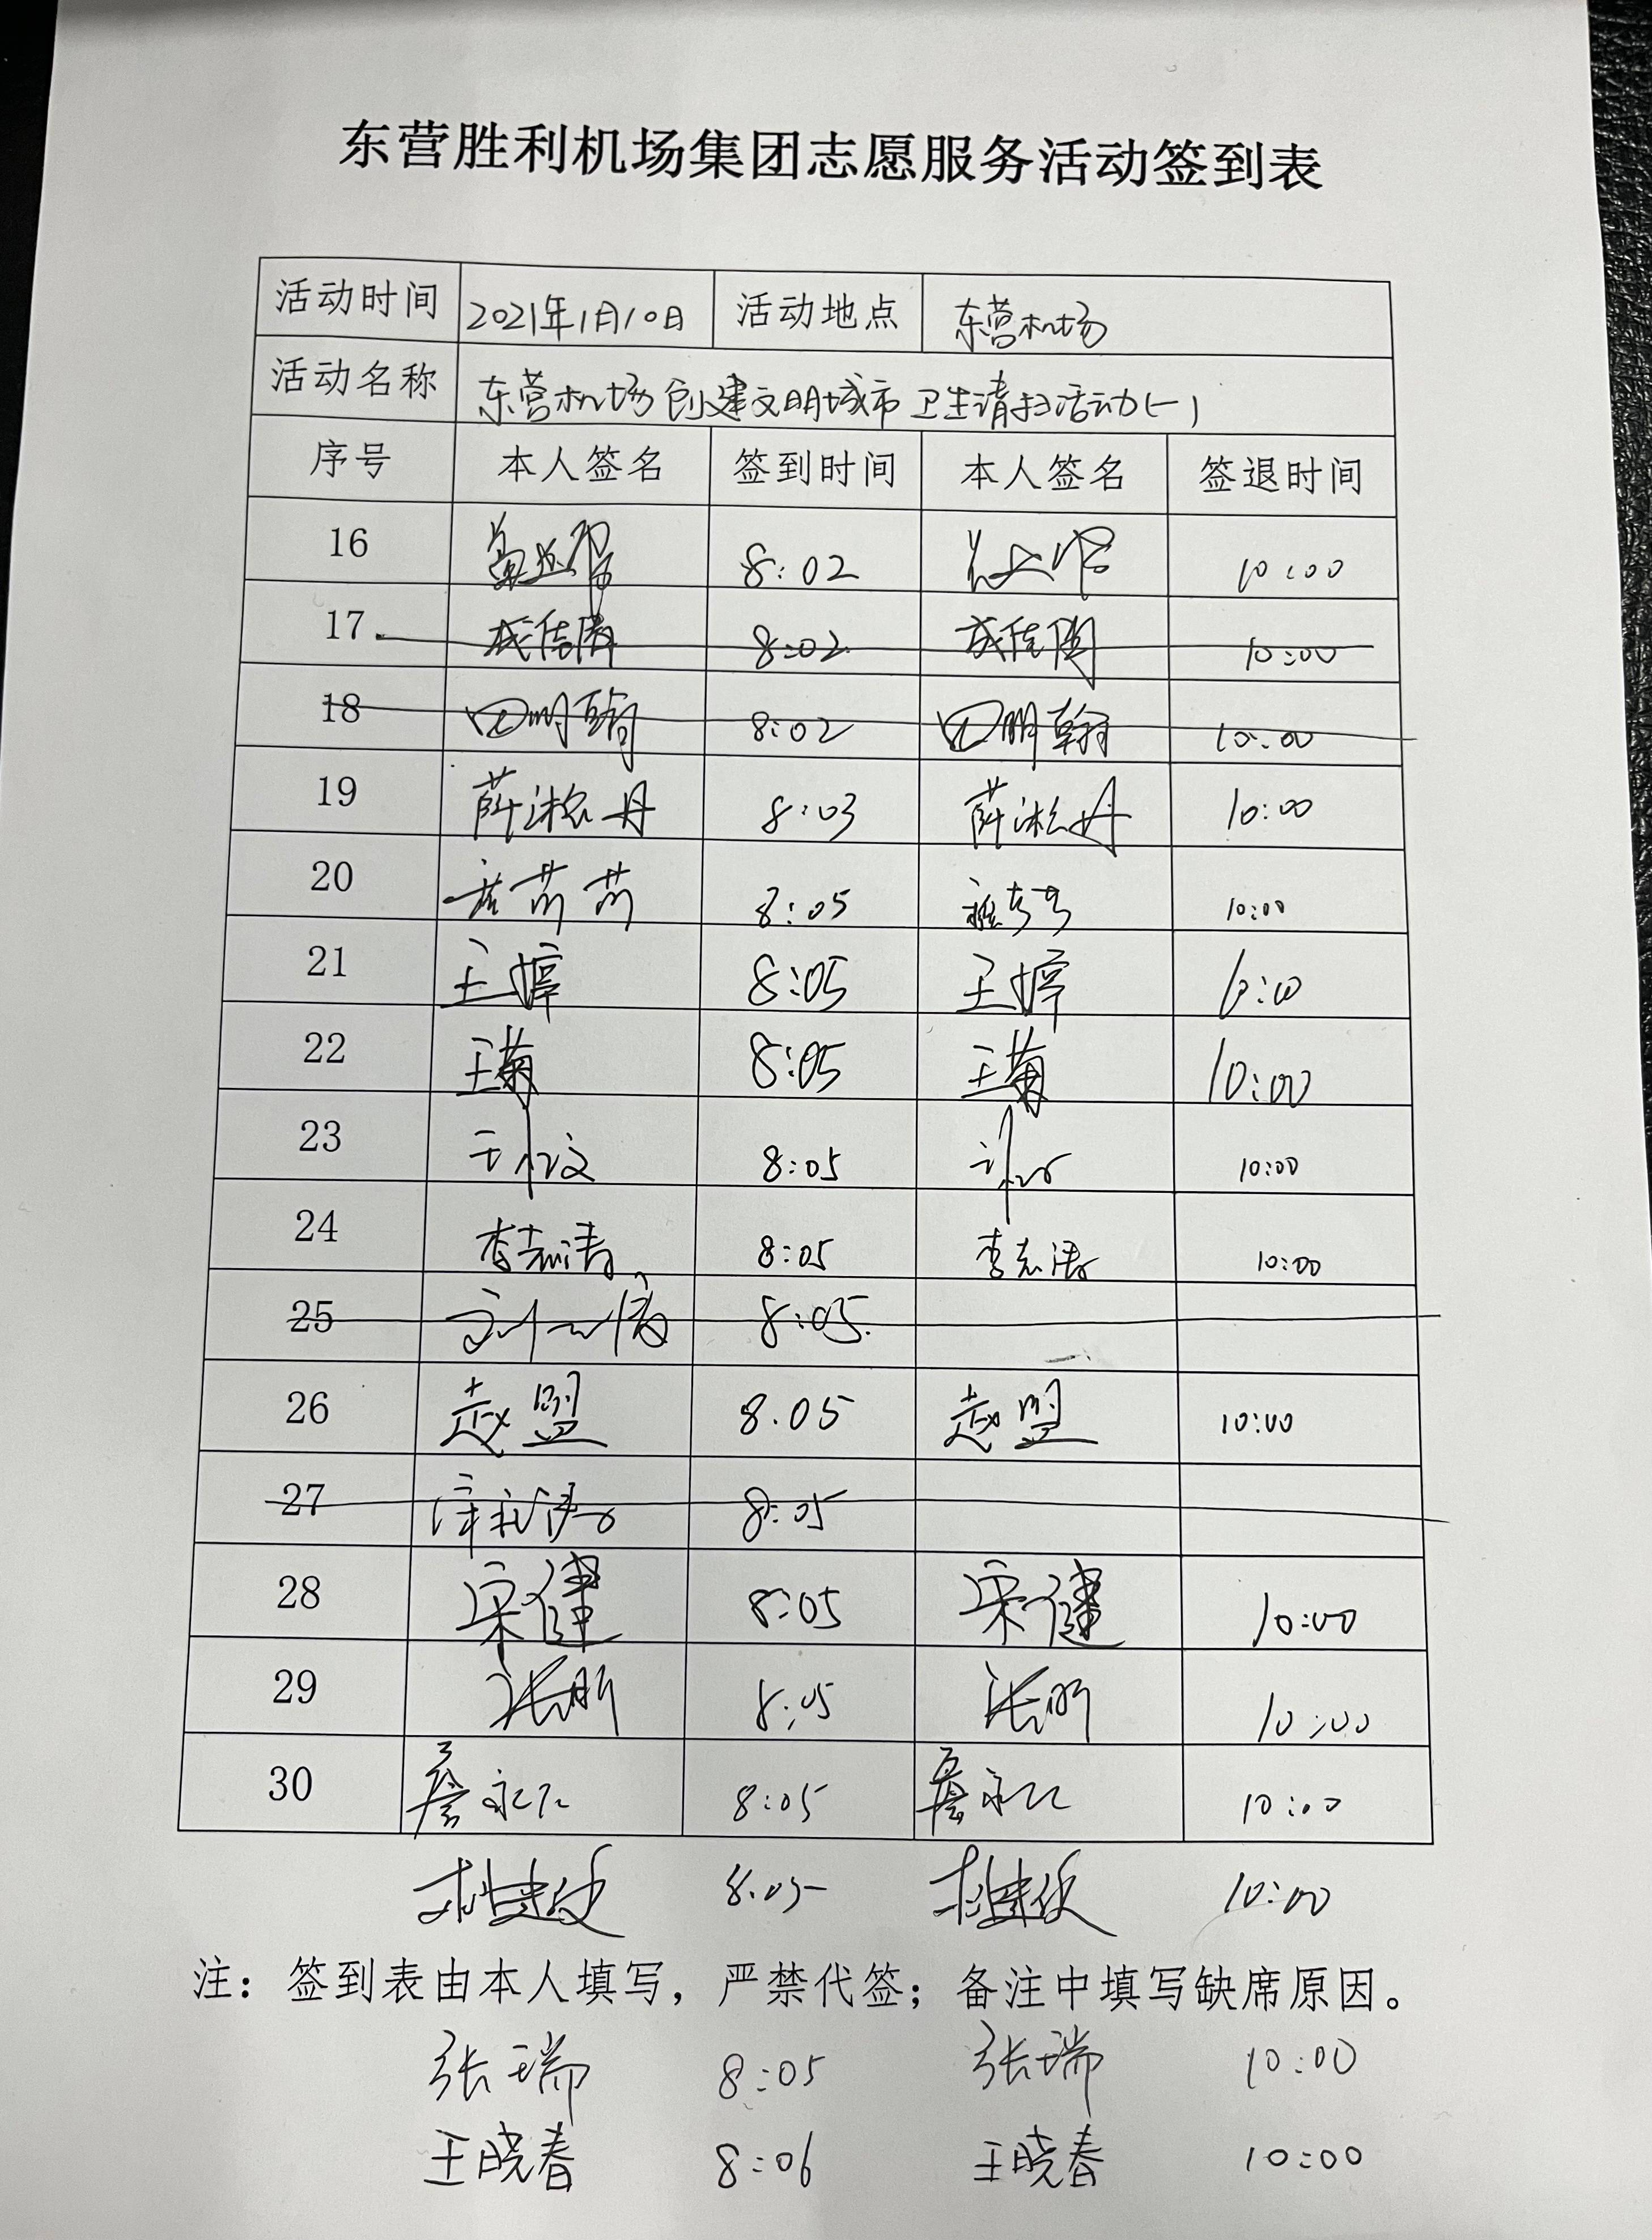 东营胜利机场集团志愿服务活动签到表
活动时间 2021年1月10日 活动地点 东营机场
活动名称 东营机场创建文明城市卫生清扫活动(一)
序号 本人签名 签到时间 本人签名 签退时间
16 8:02 10:00
17 8:02 10:00
18 田明翰 8:02 田明翰 10:00
19 薛淞丹 8:03 薛淞丹 10:00
20 8:05 10:00
21 王婷 8:05 王婷 10:00
22 王菊 8:05 王菊 10:00
23 8:05 10:00
24 李志涛 8:05 李志涛 10:00
25 8:05.
26 赵盟 8.05 赵盟 10:00
27 8:05
28 宋健 8:05 宋健 10:00
29 8:05 10:00
30 8:05 10:00
8.05 10:00
注：签到表由本人填写，严禁代签；备注中填写缺席原因。
张瑞 8:05 张瑞 10:00
王晓春 8:06 王晓春 10:00